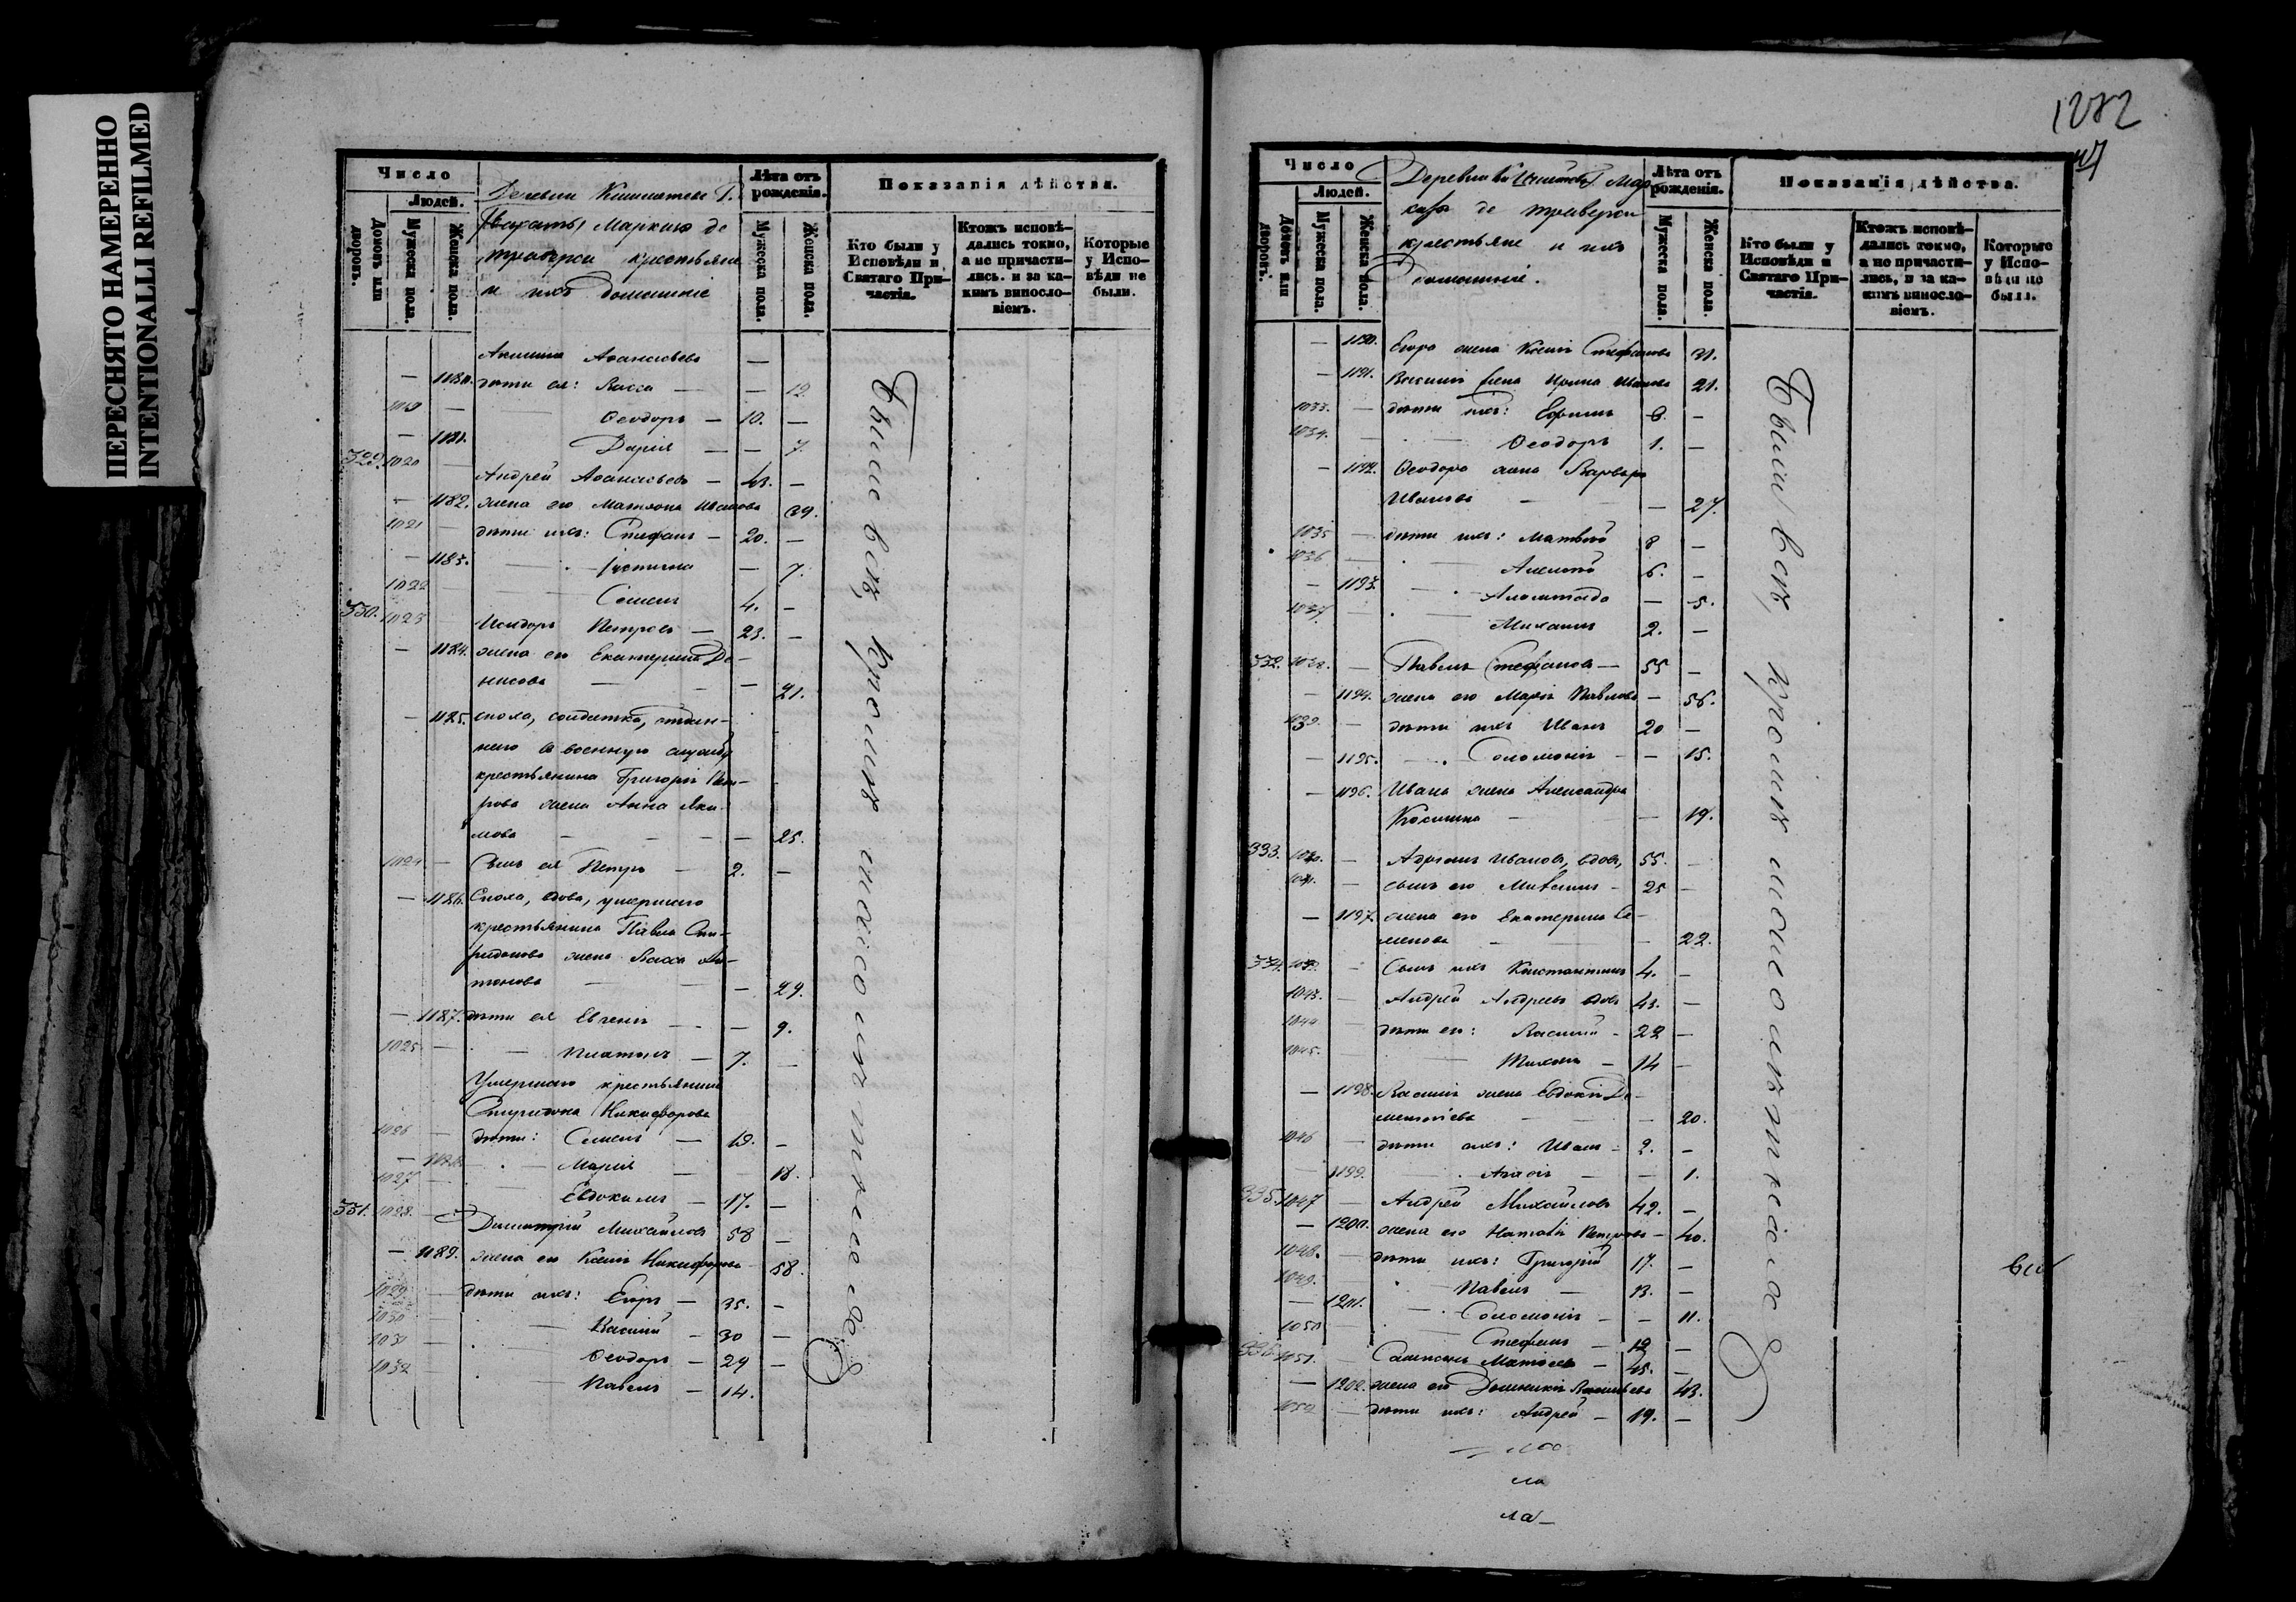 ПЕРЕСНЯТО НАМЕРЕННО
INTENTIONALLI REFILMED
1282
Число
Людей.
Домовъ или дворовъ.
Мужеска пола.
Женска пола.
Деревни
Маркиза де
траверси крестьяне
и ихъ домашніе
Лѣта отъ рожденія.
Мужеска пола.
Женска пола.
Показанія дѣйства.
Кто были у Исповѣди и Святаго Причастія.
Ктожъ исповѣдались токмо, а не причастились. и за какимъ винословіемъ.
Которые у Исповѣди не были.
Акилина Аѳанасьева —
— 1180. дѣти ея: Васса — — 12
1019 — Ѳеодоръ — 10. —
— 1181. Дарія — — 7.
329. 1020 — Андрей Аѳанасьевъ — 43. —
— 1182. жена его Матрона Иванова 39.
1021 — дѣти ихъ: Стефанъ — 20. —
— 1183. Іустинна — 7.
1022 Семенъ 4. —
330. 1023 — Исидоръ Петровъ — 23. —
— 1184. жена его Екатерина Де-
нисова — — — 21.
— 1185. сноха, солдатка, отдан-
наго въ военную службу
крестьянина Григорія Пет-
рова жена Анна Яки-
мова — — — — 25.
1024 — Сынъ ея Петръ — 2. —
— 1186. Сноха, вдова, умершаго
крестьянина Павла Спи-
ридонова жена Васса Ан-
тонова — — — 29.
— 1187. дѣти ея Евгенія — — — 9.
1025 — — Платонъ — 7. —
Умершаго крестьянина
Спиридона Никифорова
1026 — дѣти: Семенъ — 19. —
— 1188. — Марія — — 18.
1027 — Евдокимъ — 17. —
331. 1028. — Димитрій Михайловъ 58 —
— 1189. жена его Ксенія Никифорова 58.
1029. — дѣти ихъ: Егоръ — 35. —
1030 — Василій — 30 —
1031 Ѳеодоръ — 29 —
1032 Павелъ — 14.
Были всѣ, кромѣ малолѣтнихъ
Число
Людей.
Домовъ или дворовъ.
Мужеска пола.
Женска пола.
Деревни Мар
киза де траверси
крестьяне и ихъ
домашніе.
Лѣта отъ рожденія.
Мужеска пола.
Женска пола.
Показанія дѣйства.
Кто были у Исповѣди и Святаго Причастія.
Ктожъ исповѣдались токмо, а не причастились, и за какимъ винословіемъ.
Которые у Исповѣди не были.
— 1190. Егора жена Ксенія Стефанова 31.
— 1191. Василія жена Ирина Иванова 21.
1033. — дѣти ихъ: Ефимъ 3. —
1034. — Ѳеодоръ 1. —
— 1192. Ѳеодора жена Варвара
Иванова — — — 27.
1035 — дѣти ихъ: Матвѣй 8 —
1036 — Алексѣй 6. —
— 1193. — 5.
1037 — Михаилъ 2. —
332. 1038. — Павелъ Стефановъ — 55 —
— 1194. жена его Марія Павлова — 56.
1039. — дѣти ихъ Иванъ 20 —
— 1195. Соломонія — — 15.
— 1196. Ивана жена Александра
Косьмина — — 19.
333. 1040. — Адріанъ Ивановъ, вдовъ, 55. —
1041. — сынъ его — 25 —
— 1197. жена его Екатерина Се-
менова — — 22.
334. 1042. — Сынъ ихъ Константинъ 4. —
1043. — Андрей Андреевъ вдовъ 43. —
1044 — дѣти его: Василій — 22 —
1045. Тихонъ — 14 —
— 1198. Василія жена Евдокія Де-
ментіева — — 20.
1046 — дѣти ихъ: Иванъ — 2. —
— 1199. Агаѳія — — 1.
335. 1047 — Андрей Михайловъ 42. —
— 1200. жена его Наталія Петрова — 40.
1048. — дѣти ихъ: Григорій 17. —
1049. Павелъ — 13. —
— 1201. Соломонія — — 11.
1050 Стефанъ — 12 —
336. 1051. Сампсонъ Матвеевъ — 45. —
— 1202. жена его Домникія Васильева 43.
1052 — дѣти ихъ: Андрей — 19. —
Были всѣ, кромѣ малолѣтнихъ